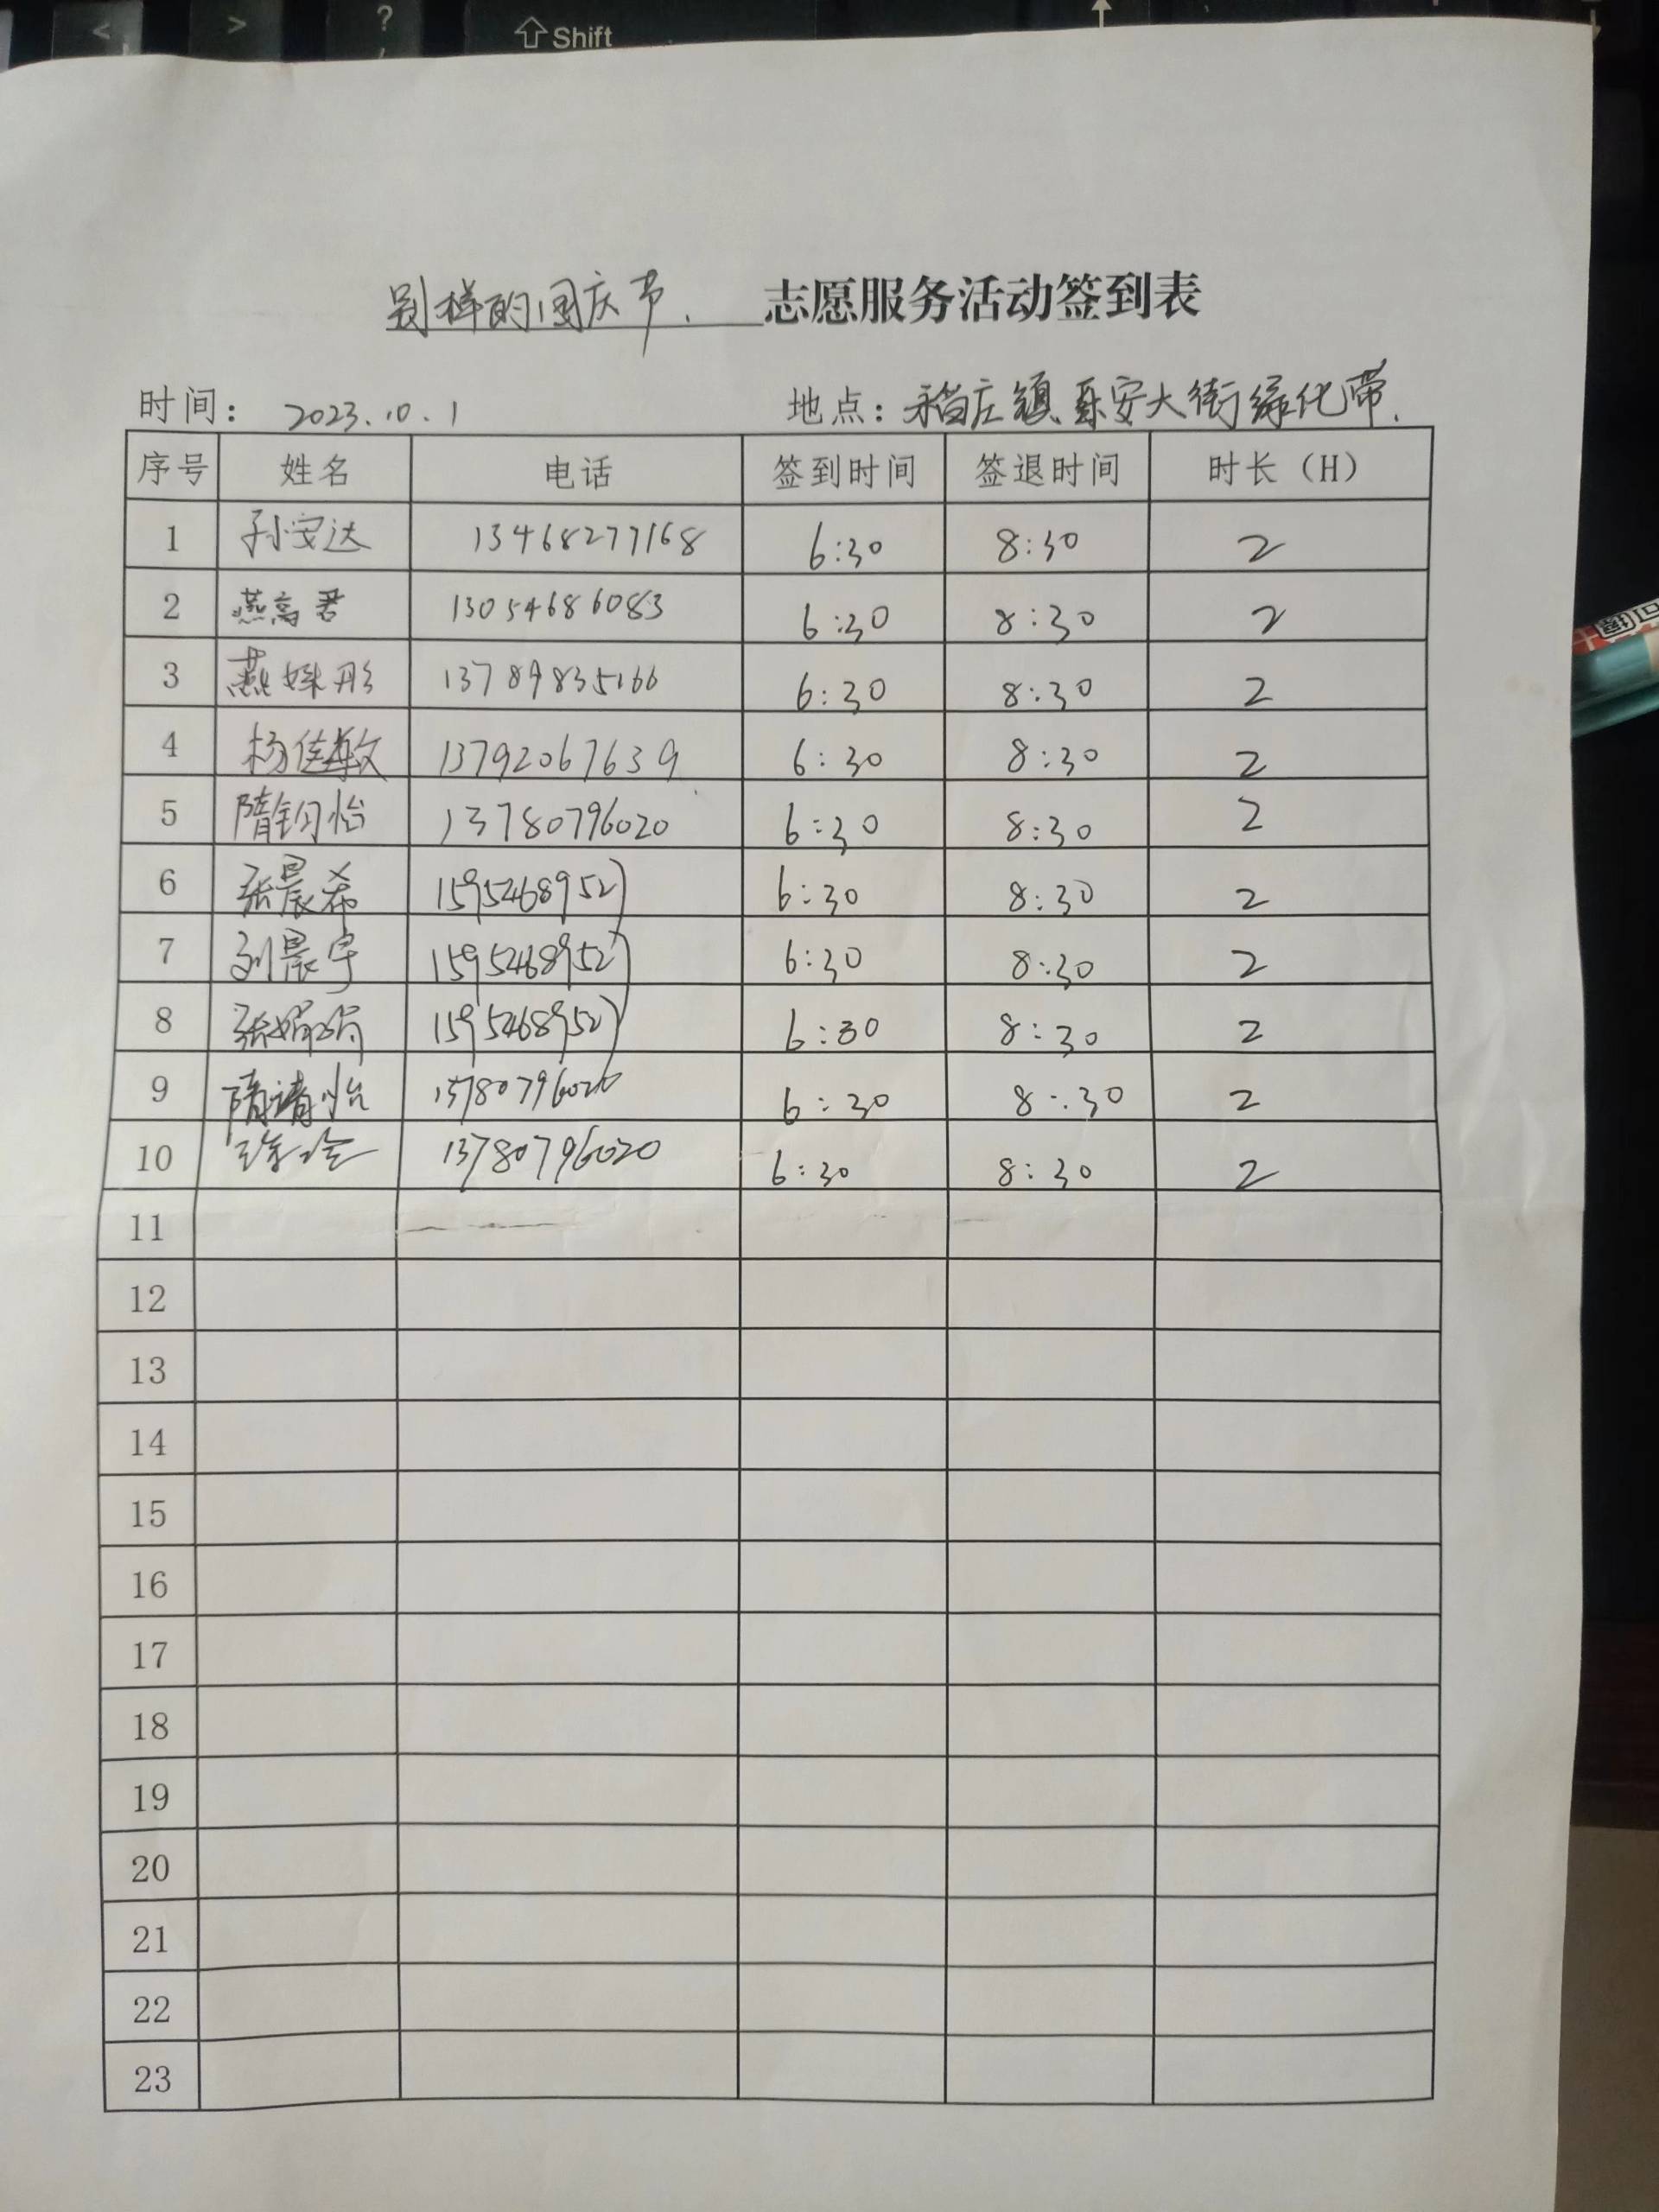 < > ?
⇧ Shift
别样的国庆节. 志愿服务活动签到表
时间: 2023.10.1 地点: 稻庄镇乐安大街绿化带.
序号 姓名 电话 签到时间 签退时间 时长(H)
1 孙安达 13468277168 6:30 8:30 2
2 燕高君 13054686083 6:30 8:30 2
3 燕姝彤 13789835166 6:30 8:30 2
4 杨佳敏 13792067639 6:30 8:30 2
5 隋钧怡 13780796020 6:30 8:30 2
6 张晨希 15952468952 6:30 8:30 2
7 刘晨宇 15952468952 6:30 8:30 2
8 张娟娟 15952468952 6:30 8:30 2
9 隋靖怡 13780796020 6:30 8:30 2
10 13780796020 6:30 8:30 2
11
12
13
14
15
16
17
18
19
20
21
22
23